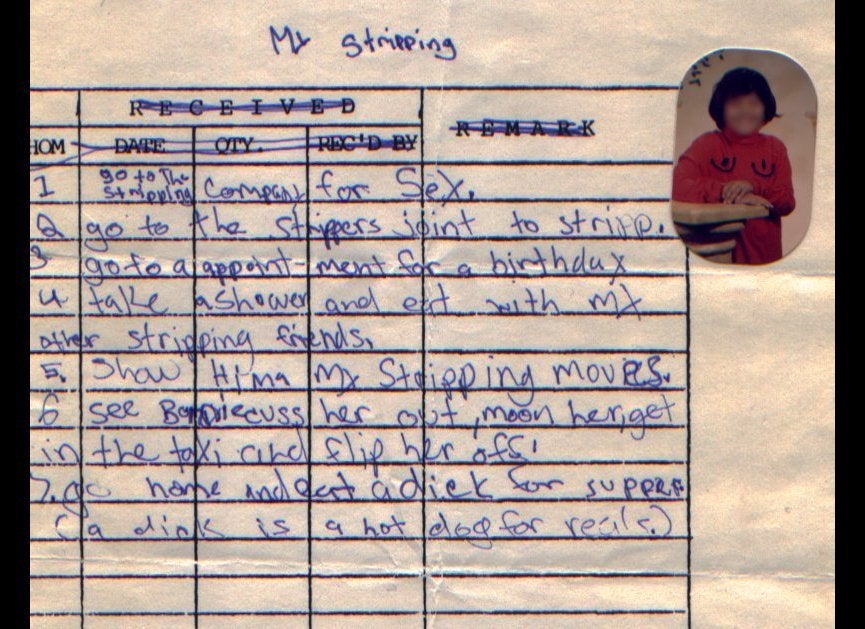 My stripping
RECEIVED
REMARK
DATE QTY. REC'D BY
1 go to the stripping Company for Sex.
2 go to the strippers joint to stripp.
3 go to a appoint-ment for a birthday
4 take a shower and eat with my
other stripping friends.
5. Show Hima My Stripping moves.
6 see cuss her out, moon her, get
in the taxi and flip her off!
7. go home and eat a dick for supper
(a dink is a hot dog for reals.)